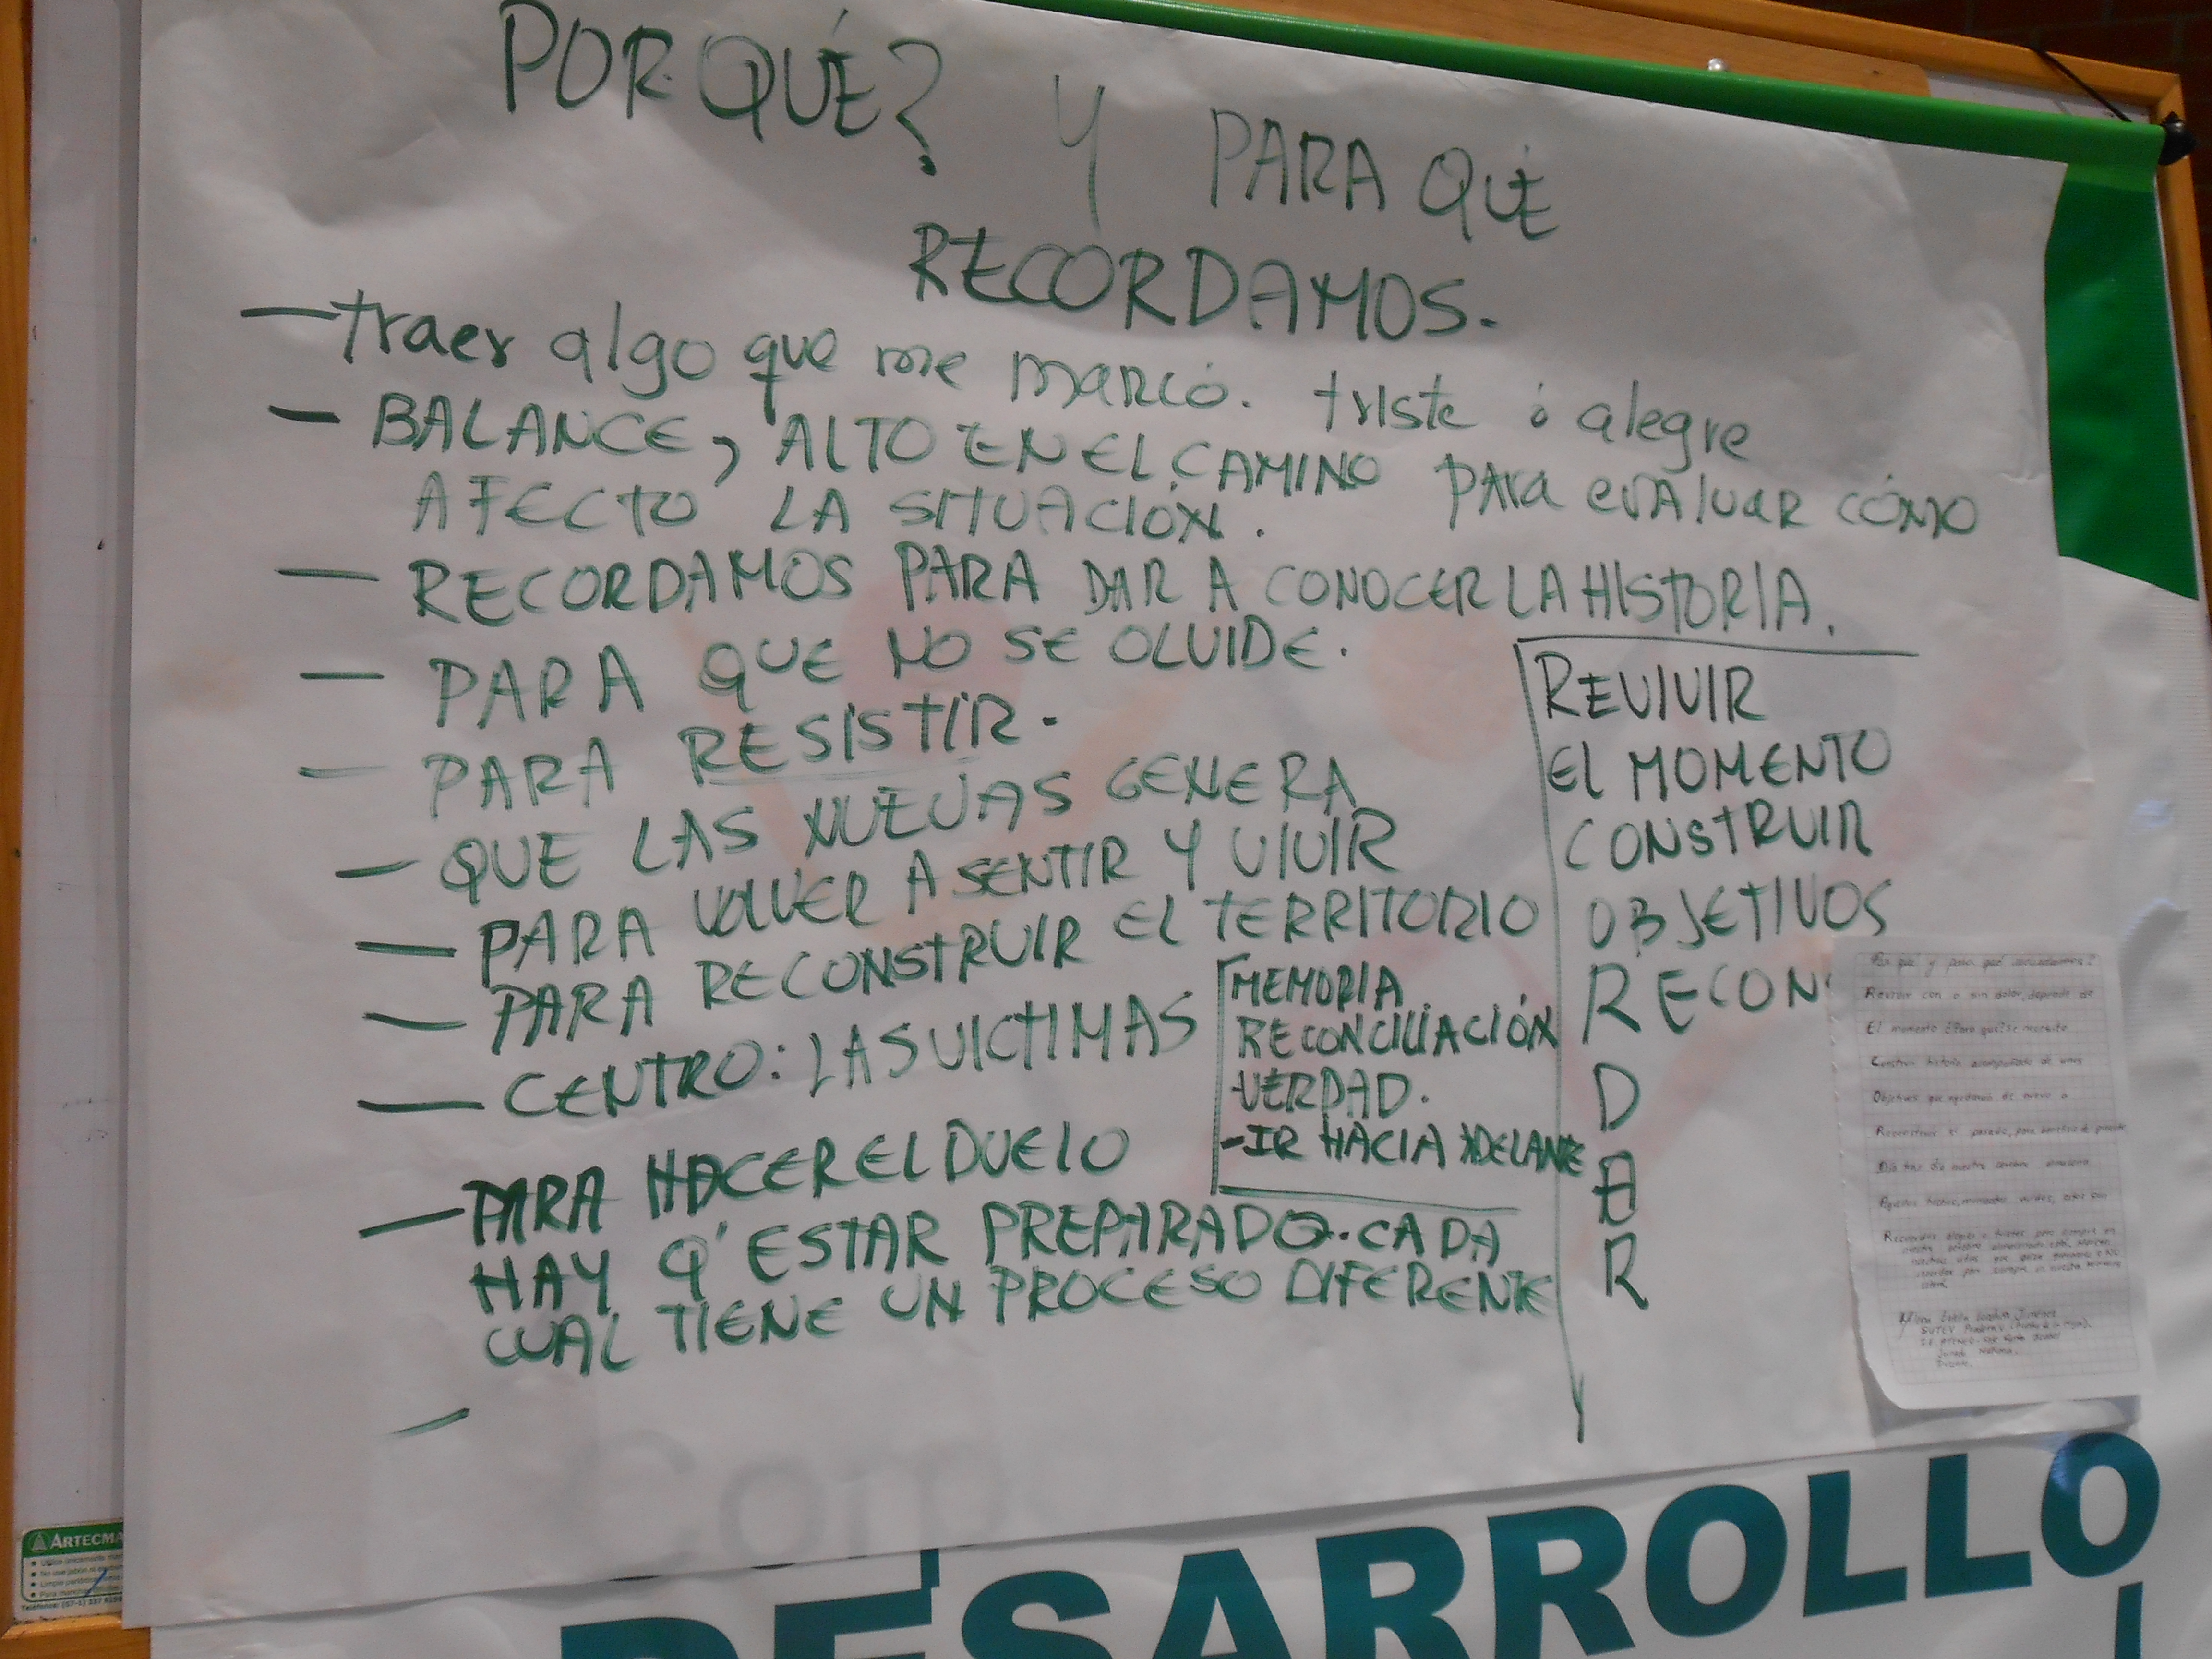 POR QUÉ? Y PARA QUÉ
RECORDAMOS.
— traer algo que me marcó. triste ó alegre
— BALANCE, ALTO EN EL CAMINO PARA EVALUAR CÓMO
AFECTO LA SITUACIÓN.
— RECORDAMOS PARA DAR A CONOCER LA HISTORIA.
— PARA QUE NO SE OLVIDE.
— PARA RESISTIR.
— QUE LAS NUEVAS GENERA
— PARA VOLVER A SENTIR Y VIVIR
— PARA RECONSTRUIR EL TERRITORIO
— CENTRO: LAS VICTIMAS
MEMORIA
RECONCILIACIÓN
VERDAD.
- IR HACIA ADELANTE
— PARA HACER EL DUELO
HAY Q' ESTAR PREPARADO. CADA
CUAL TIENE UN PROCESO DIFERENTE
—
REVIVIR
EL MOMENTO
CONSTRUIR
OBJETIVOS
RECONS
D
A
R
Por qué y para qué recordamos?
Revivir con o sin dolor, depende de
El momento ¿Para qué? se necesita
Construir historia acompañado de unos
Objetivos que ayudarán de nuevo a
Reconstruir el pasado, para
DESARROLLO
ARTECMA